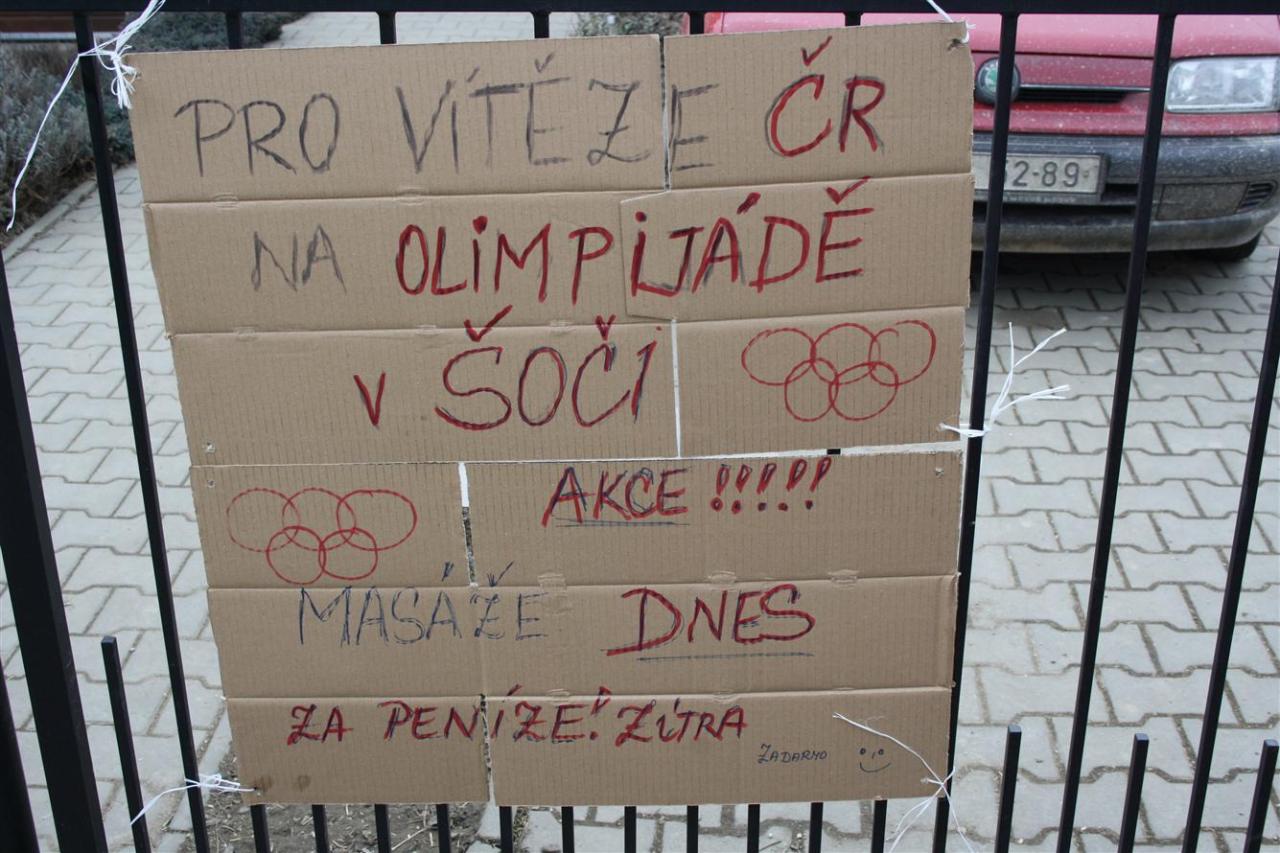 PRO VÍTĚZE ČR
NA OLIMPIJÁDĚ
V ŠOČI
AKCE !!!!!
MASÁŽE DNES
ZA PENÍZE! ZÍTRA
ZADARMO
2-89